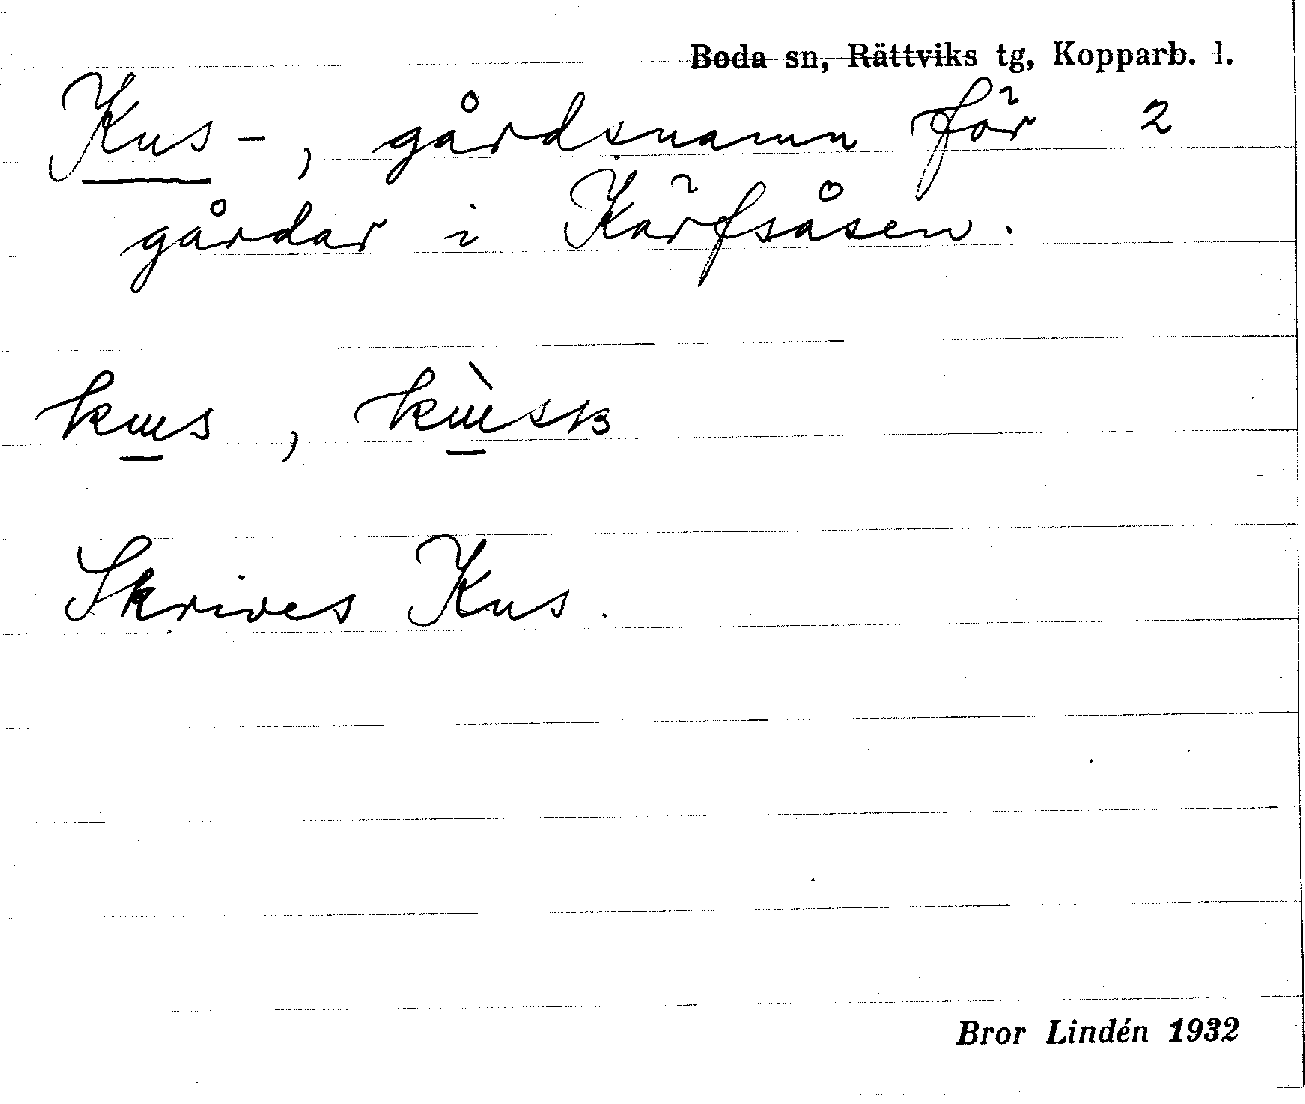 Boda sn, Rättviks tg, Kopparb. l.
Kus-, gårdsnamn för 2
gårdar i Kärfsåsen.
Skrives Kus.
Bror Lindén 1932